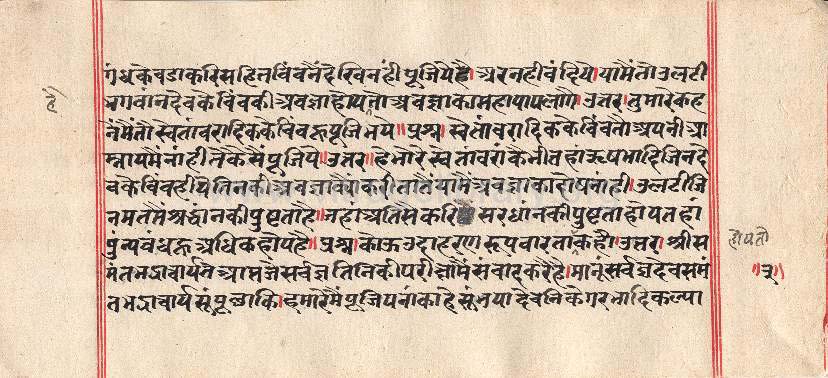 गंधकेवडाकरिसहितबिंबनैंदेखिनटीपूजियेहै।अरनहीवंदिये।यामैंतोउलटी
भगवांनदेवकेबिंबकीअवज्ञाहोयतौअवज्ञाकामहापापलागै।उत्तर।तुमारेकह
नेंमैंतौस्वेतांबरादिककेबिंबहूपूजिनये॥प्रश्न।स्वेतांबरादिककेबिंबतौअपनीआ
म्नायमैंनांहीतकैसैंपूजिये॥उत्तर।हमारेस्वेतांबरांकैभीतहांऋषभादिजिनदे
वकेबिंबहीयेतिनकीअवज्ञाक्योंकरीतातैंयामैंअवज्ञाकाहोयनांही।उलटीजि
नमतमैंश्रद्धांनकीपुष्टताहै।जहांअतिसकरि सरधांनकीपुष्टताहोयतहां
पुंन्यबंधहूअधिकहोयहै॥प्रश्न।कोऊउदाहरणरूपवारताकहौ।उत्तर।श्रीस
मंतभद्राचार्यनैआप्तजैसर्वज्ञतिनिकीपरीक्षामैंसंवादकरैहै।मानूंसर्वज्ञदेवसमं
तभद्राचार्यसूंपूछाकि।हमारेमैंपूजियपनांकाहेसूंभयादेवनिकेगरभादिकल्पा
होयतो
॥३॥